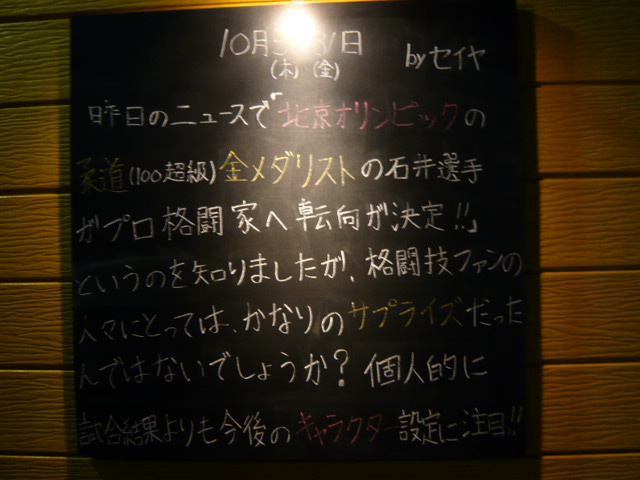 10月30.31日
(木)(金)
byセイヤ
昨日のニュースで「北京オリンピックの
柔道(100超級)金メダリストの石井選手
がプロ格闘家へ転向が決定!!」
というのを知りましたが、格闘技ファンの
人々にとっては、かなりのサプライズだった
んではないでしょうか?個人的に
試合結果よりも今後のキャラクター設定に注目!!